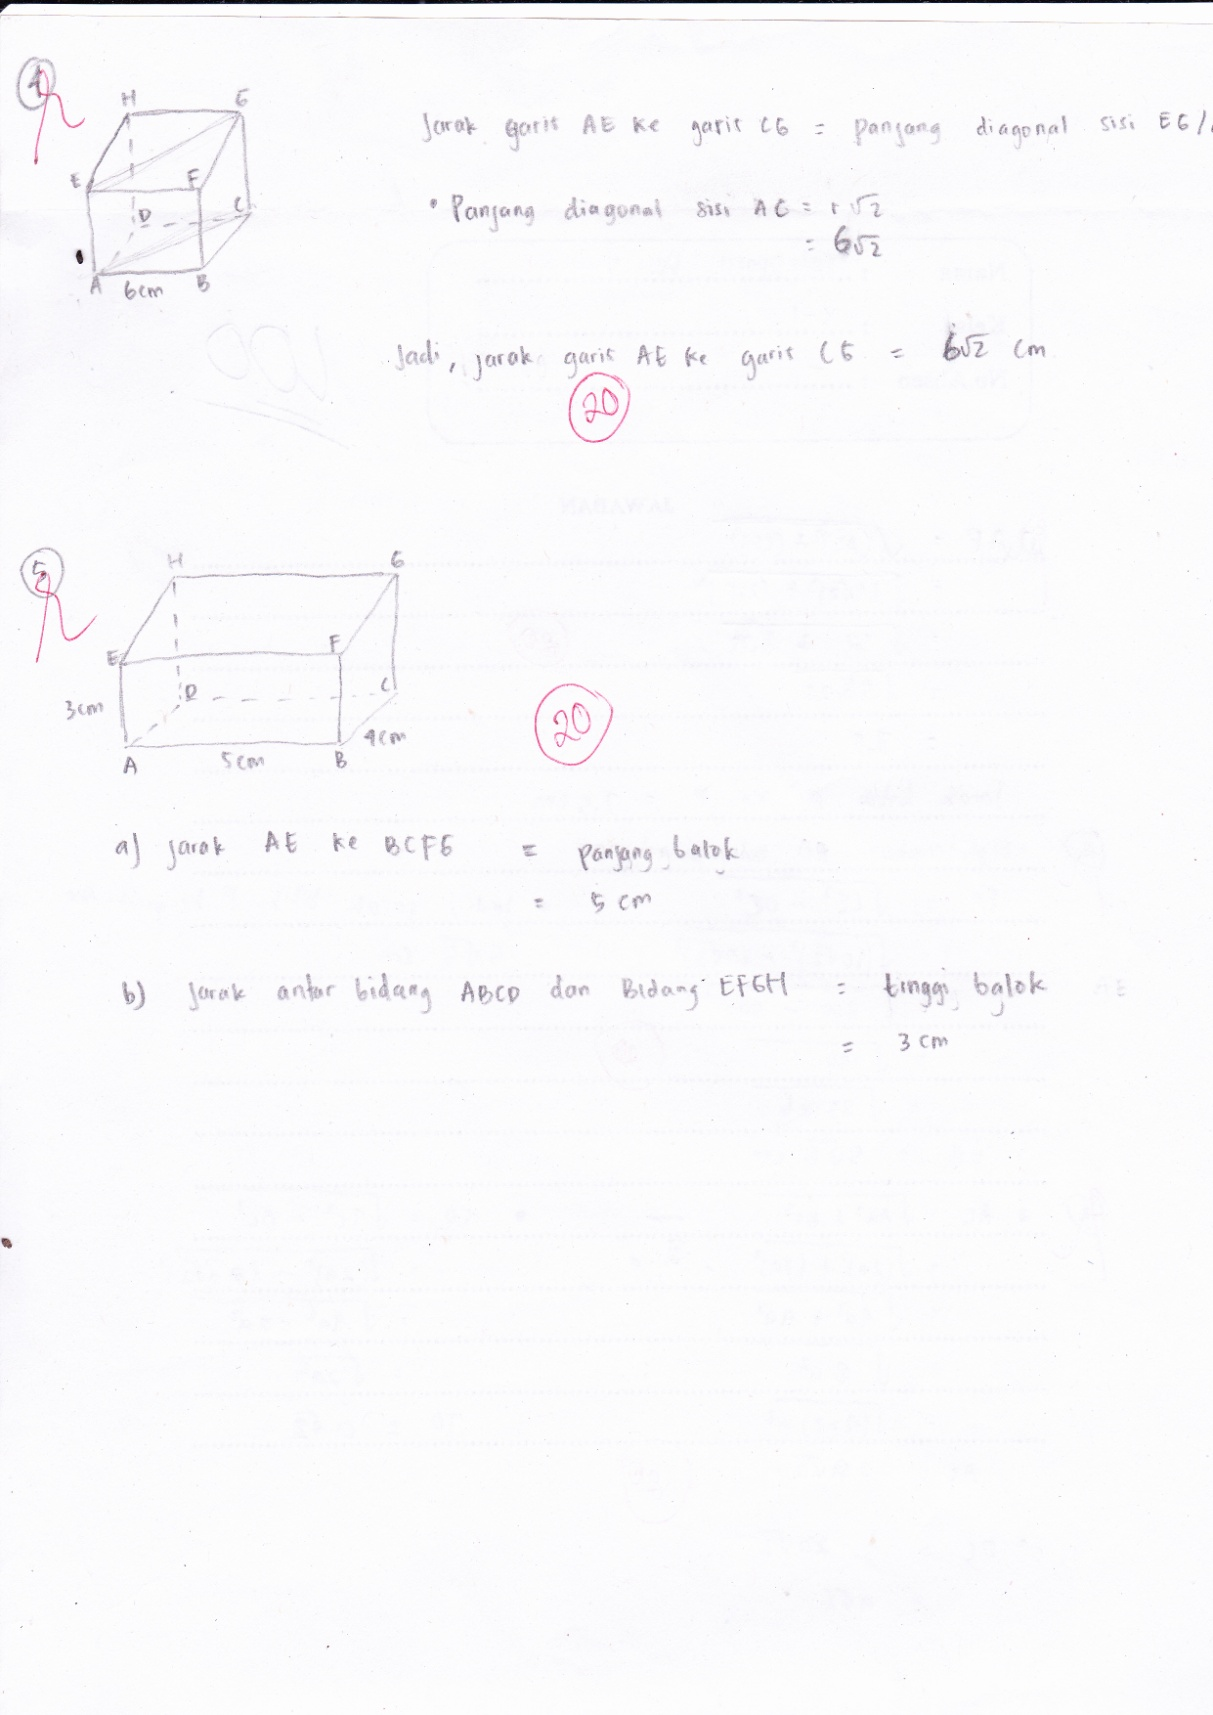 4
H G
E F
D C
A 6cm B
Jarak garis AE ke garis CG = panjang diagonal sisi EG/
• Panjang diagonal sisi AC = r√2
= 6√2
Jadi, jarak garis AE ke garis CG = 6√2 cm
20
5
H G
E F
D C
3cm
4cm
A 5cm B
20
a) Jarak AE ke BCFG = panjang balok
= 5 cm
b) Jarak antar bidang ABCD dan Bidang EFGH = tinggi balok
= 3 cm